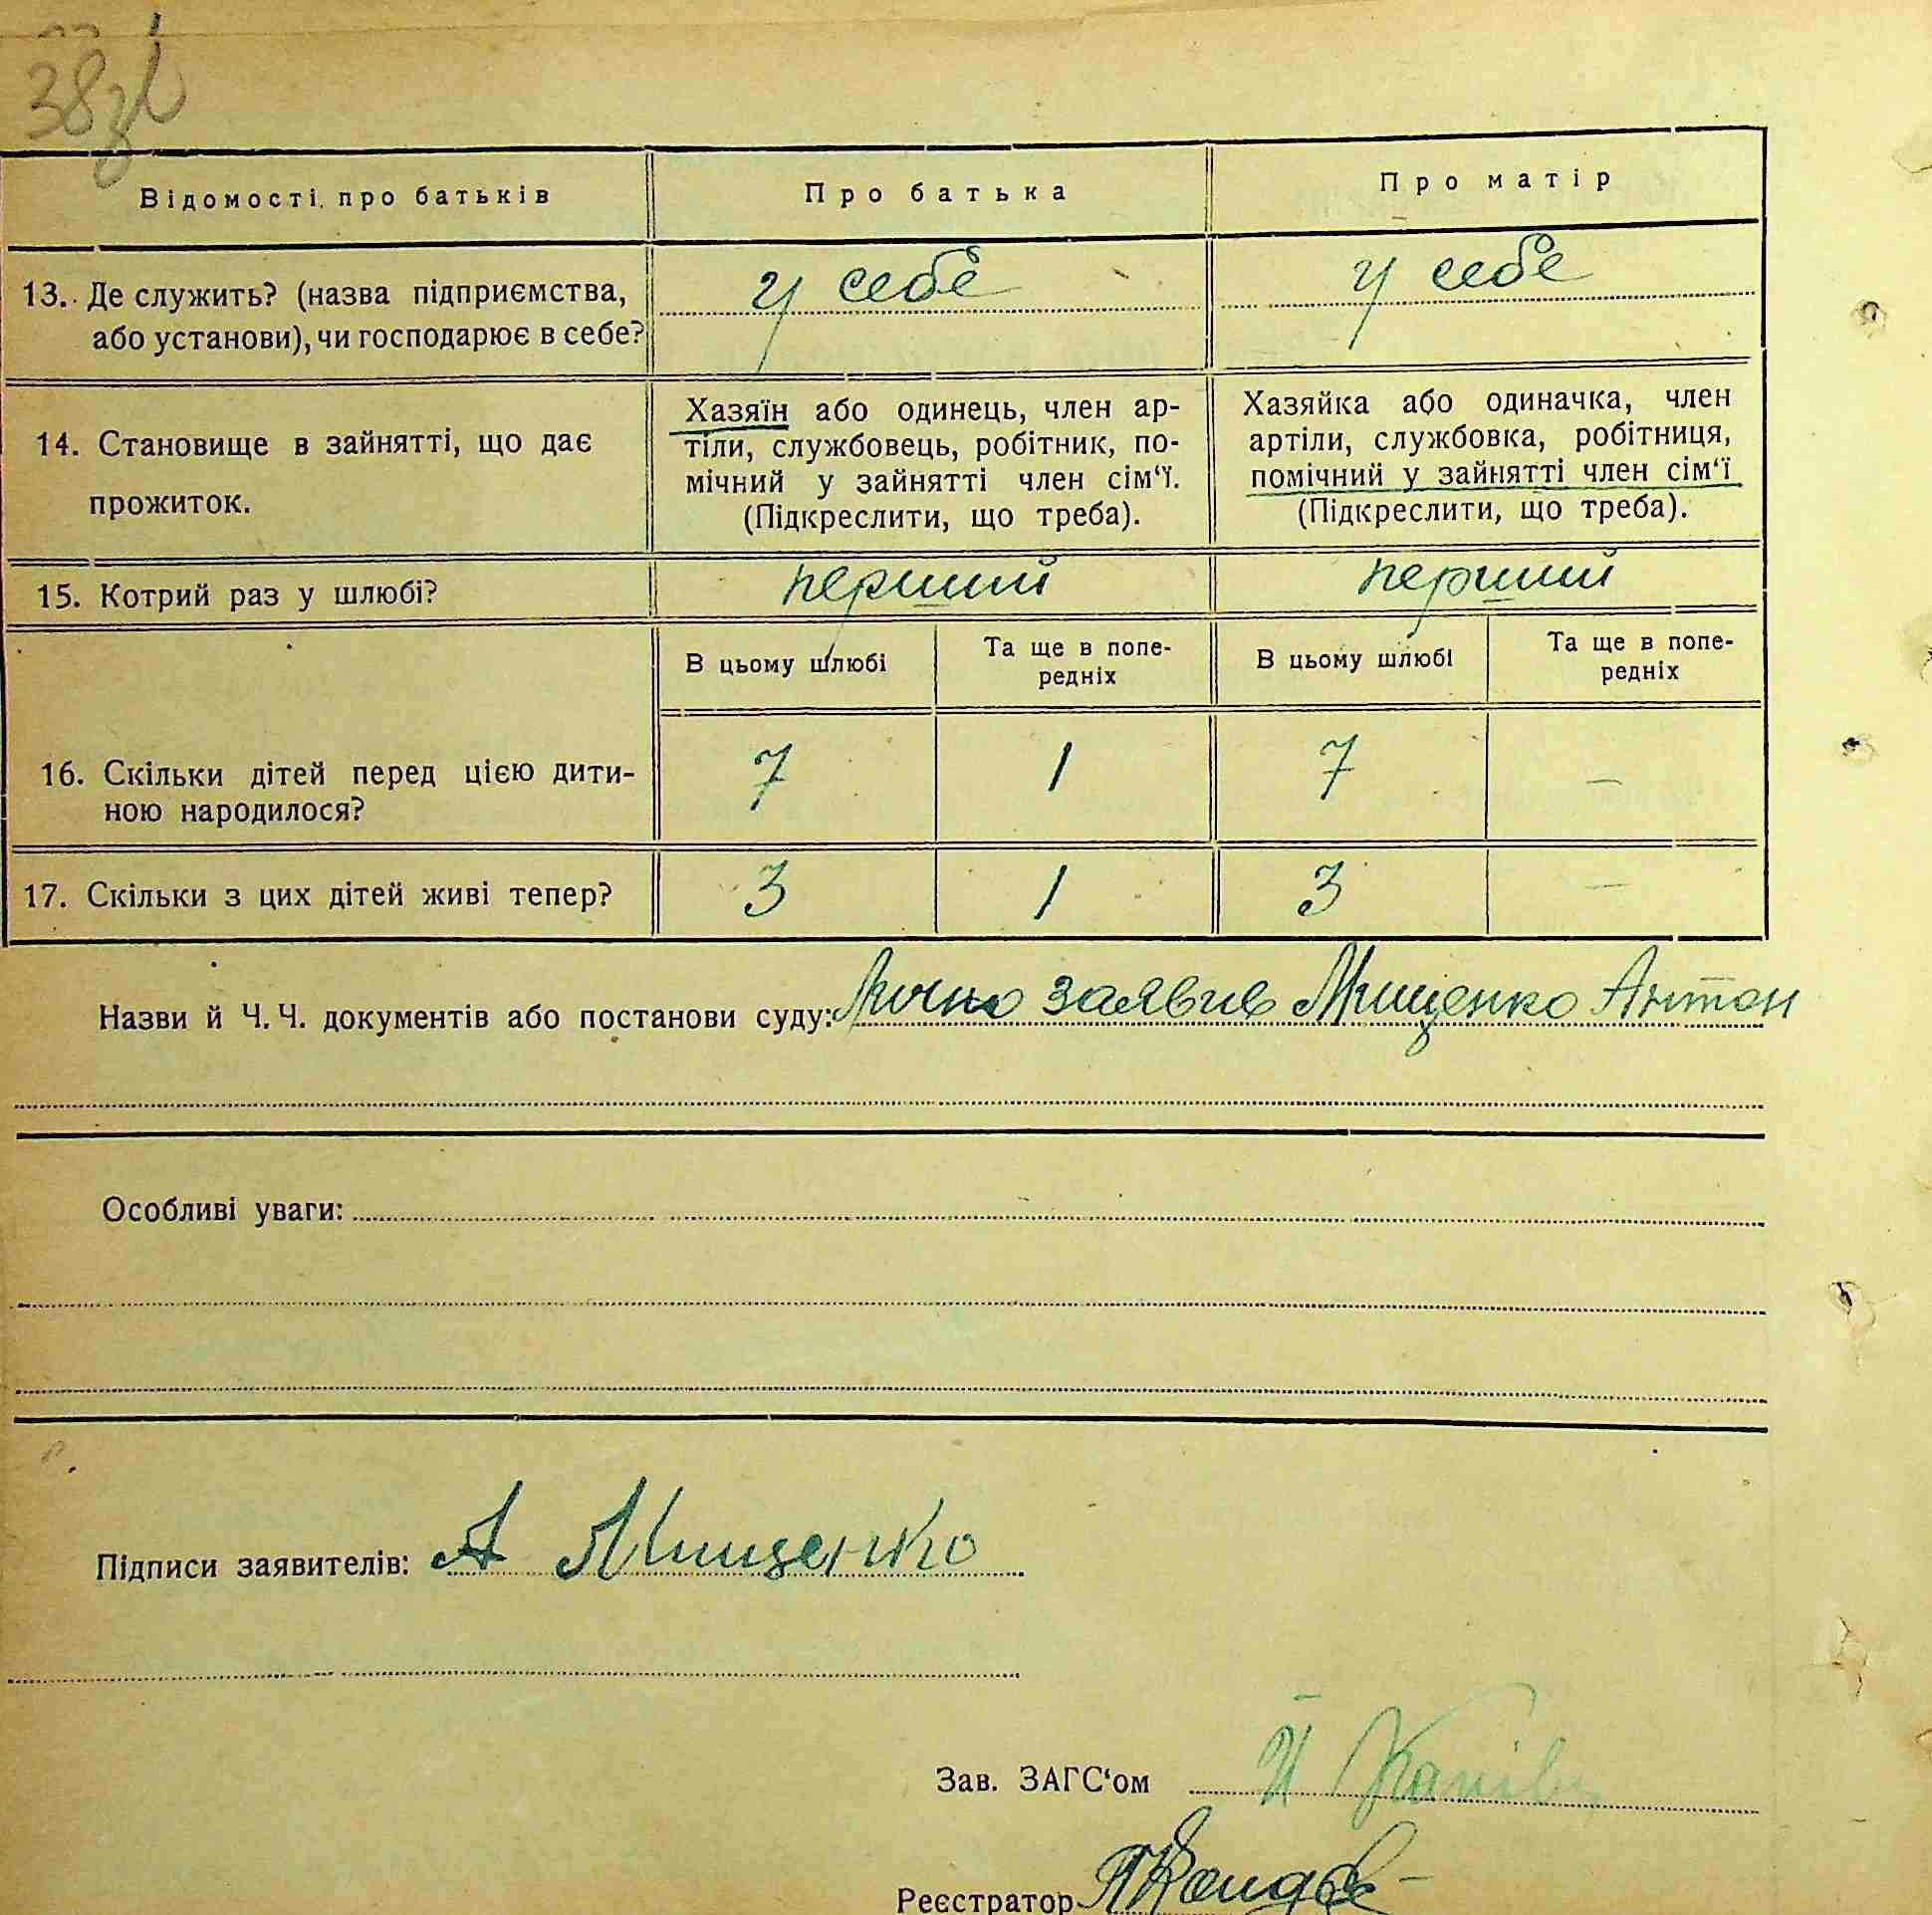 38зв
Відомості про батьків
Про батька
Про матір
13. Де служить? (назва підприємства,
або установи), чи господарює в себе?
у себе
у себе
14. Становище в зайнятті, що дає
прожиток.
Хазяїн або одинець, член ар-
тіли, службовець, робітник, по-
мічний у зайнятті член сім‘ї.
(Підкреслити, що треба).
Хазяйка або одиначка, член
артіли, службовка, робітниця,
помічний у зайнятті член сім‘ї
(Підкреслити, що треба).
15. Котрий раз у шлюбі?
перший
перший
В цьому шлюбі
Та ще в попе-
редніх
В цьому шлюбі
Та ще в попе-
редніх
16. Скільки дітей перед цією дити-
ною народилося?
7
1
7
–
17. Скільки з цих дітей живі тепер?
3
1
3
–
Назви й Ч. Ч. документів або постанови суду: Лично заявив Мищенко Антон
Особливі уваги:
Підписи заявителів: А Мищенко
Зав. ЗАГС‘ом
Реєстратор